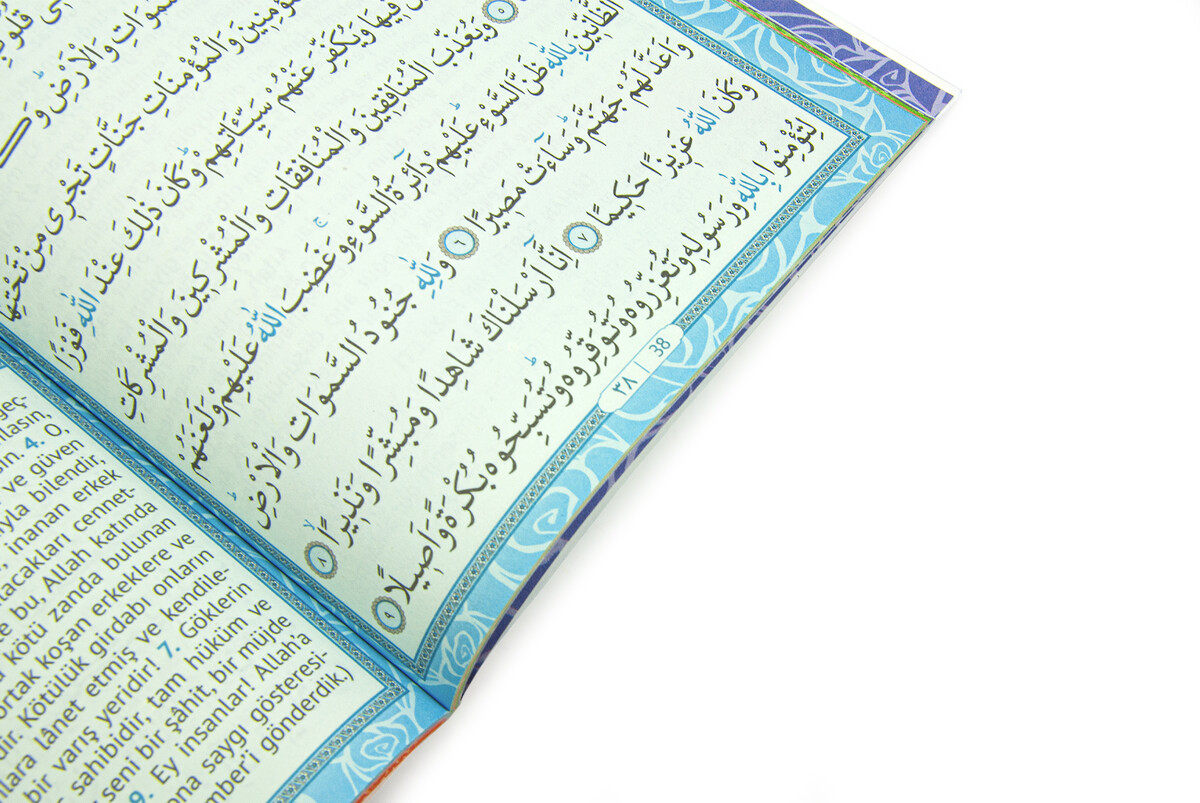 سَّمٰوَاتِ وَالْاَرْضِۜ
ؤْمِنٖينَ وَالْمُؤْمِنَاتِ جَنَّاتٍ تَجْرٖى مِنْ تَحْتِهَا
فٖيهَا وَيُكَفِّرَ عَنْهُمْ سَيِّـَٔاتِهِمْۜ وَكَانَ ذٰلِكَ عِنْدَ اللّٰهِ فَوْزًا
٥ وَيُعَذِّبَ الْمُنَافِقٖينَ وَالْمُنَافِقَاتِ وَالْمُشْرِكٖينَ وَالْمُشْرِكَاتِ
الظَّٓانّٖينَ بِاللّٰهِ ظَنَّ السَّوْءِۜ عَلَيْهِمْ دَٓائِرَةُ السَّوْءِۚ وَغَضِبَ اللّٰهُ عَلَيْهِمْ وَلَعَنَهُمْ
وَاَعَدَّ لَهُمْ جَهَنَّمَۜ وَسَٓاءَتْ مَصٖيرًا ٦ وَلِلّٰهِ جُنُودُ السَّمٰوَاتِ وَالْاَرْضِۜ
وَكَانَ اللّٰهُ عَزٖيزًا حَكٖيمًا ٧ اِنَّٓا اَرْسَلْنَاكَ شَاهِدًا وَمُبَشِّرًا وَنَذٖيرًاۙ ٨
لِتُؤْمِنُوا بِاللّٰهِ وَرَسُولِهٖ وَتُعَزِّرُوهُ وَتُوَقِّرُوهُۜ وَتُسَبِّحُوهُ بُكْرَةً وَاَصٖيلًا ٩
٣٨ | 38
geç-
ılasın,
sın. 4. O,
ve güven
ıyla bilendir,
, inanan erkek
lacakları cennet-
te bu, Allah katında
kötü zanda bulunan
ortak koşan erkeklere ve
dir. Kötülük girdabı onların
nlara lânet etmiş ve kendile-
bir varış yeridir! 7. Göklerin
sahibidir, tam hüküm ve
seni bir şâhit, bir müjde
9. Ey insanlar! Allah'a
ona saygı gösteresi-
mber'i gönderdik.)